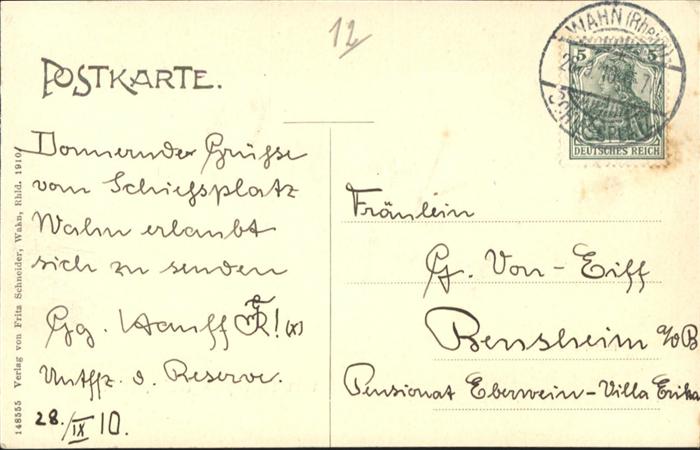 12
POSTKARTE.
WAHN (Rhein)
SCHIESSPLATZ
5 5
DEUTSCHES REICH
Donnernde Grüsse
vom Schiessplatz
Wahn erlaubt
sich zu senden
Gg. Hauff ! (x)
Untffz. d. Reserve.
28./IX 10.
Fräulein
G. Von-Eiff
Bensheim a/B
Pensionat Eberwein-Villa Erika
148555 Verlag von Fritz Schneider, Wahn, Rhld. 1910